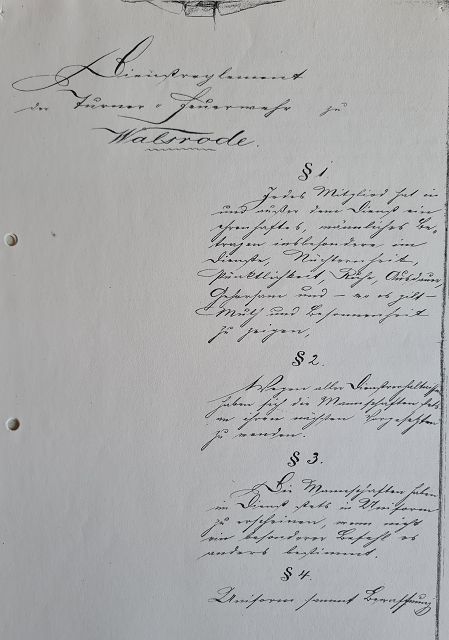 Dienstreglement
der Turner-Feuerwehr zu
Walsrode.
§ 1
Jedes Mitglied hat in
und außer dem Dienst ein
ehrenhaftes, männliches Be-
tragen insbesondere im
Dienste, Nüchternheit,
Pünktlichkeit, Ruhe, Ausdauer,
Gehorsam und – wo es gilt –
Muth und Besonnenheit
zu zeigen.
§ 2.
Wegen aller Dienstverhältnisse
haben sich die Mannschaften stets
an ihren nächsten Vorgesetzten
zu wenden.
§ 3.
Die Mannschaften haben
im Dienst stets in Uniform
zu erscheinen, wenn nicht
ein besonderer Befehl es
anders bestimmt.
§ 4.
Uniform sammt Bewaffnung